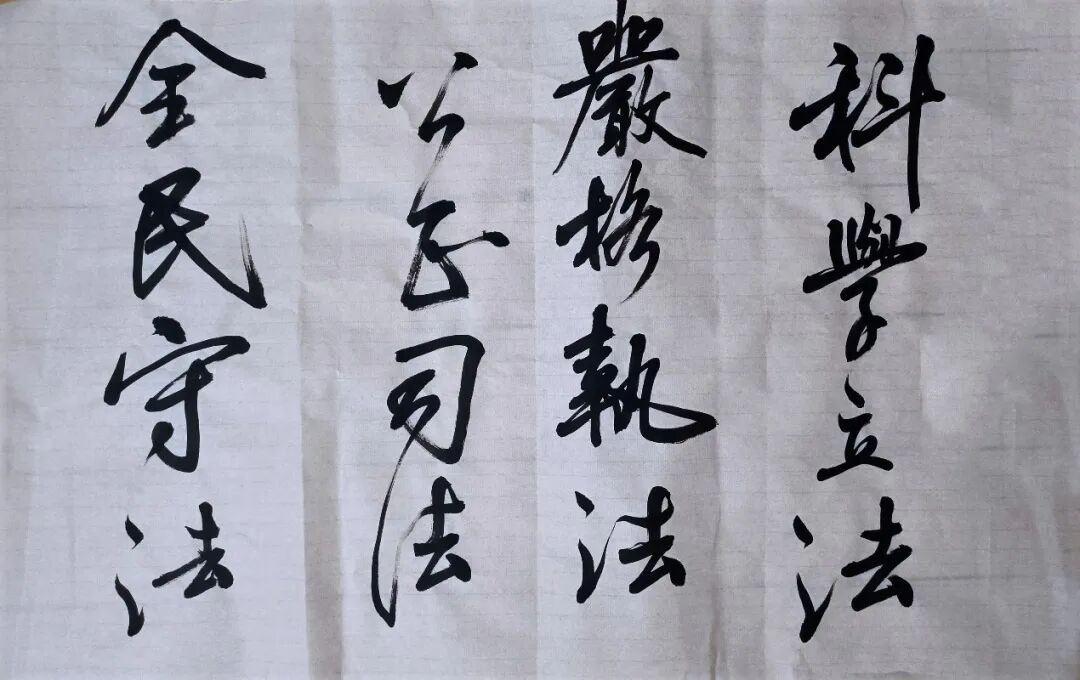 科學立法
嚴格執法
公正司法
全民守法